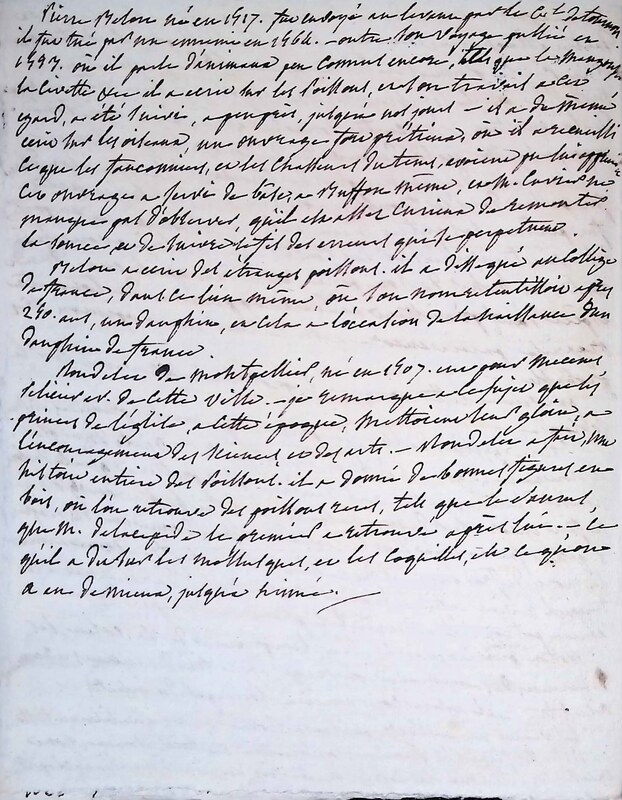 Pierre Belon né en 1517. fut envoyé au levant par le Cal. de tournon
il fut tué par un ennemi en 1564. – outre son voyage publié en
1553. où il parle d'animaux peu connus encore, tels que la
la Civette &c il a écrit sur les poissons, et son travail a cet
égard, a été suivi, a peu près, jusqu'à nos jours – il a de même
écrit sur les oiseaux, un ouvrage fort précieux, où il a recueilli
ce que les fauconniers, et les chasseurs du tems, avoient pu lui apprendre
Cet ouvrage a servi de base, a Buffon même, et M. Cuvier ne
manque pas d'observer, qu'il est assez curieux de remonter
la source, et de suivre le fil des erreurs qui se perpetuent.
Belon a écrit des étranges poissons. il a disséqué au Collège
de france, dans ce lieu même, où son nom retentissoit après
290. ans, un dauphin, et cela a l'occasion de la naissance d'un
dauphin de france.
Rondelet de Montpellier, né en 1507. eut pour mecene
pelicier ev. de cette ville. – je remarque a ce sujet que les
princes de l'église, a cette époque, mettoient leur gloire, a
l'encouragement des sciences et des arts. – Rondelet a fait, une
histoire entière des poissons. il a donné de bonnes figures en
bois, où l'on retrouve des poissons rares, tels que le
que M. de lacepede le premier a retrouvé après lui. – Ce
qu'il a dit sur les mollusques, et les coquilles, est ce qu'on
a eu de mieux, jusqu'à linné.